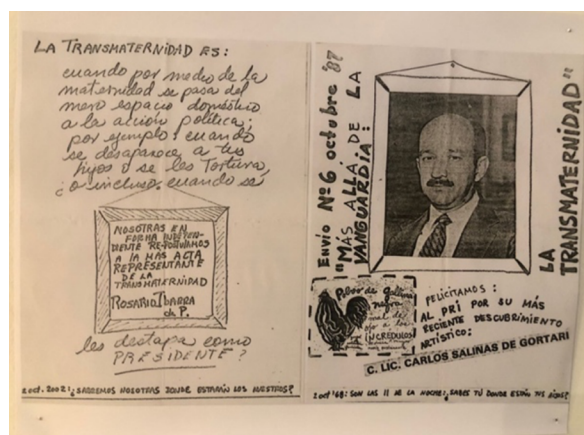 LA TRANSMATERNIDAD ES:
cuando por medio de la
maternidad se pasa del
mero espacio doméstico
a la acción política;
por ejemplo: cuando
se desaparece a tus
hijos o se les Tortura,
¿o incluso, cuando se
NOSOTRAS EN
FORMA INDEPEN-
DIENTE RE-POSTULAMOS
A LA MAS ACTA
REPRESENTANTE
DE LA
TRANSMATERNIDAD
ROSARIO IBARRA
de P.
les destapa como
PRESIDENTE?
2 oct. 2002: ¿SABREMOS NOSOTRAS DONDE ESTARÁN LOS NUESTROS?
ENVÍO Nº6 octubre 87
"MÁS ALLÁ DE LA
VANGUARDIA: LA
TRANSMATERNIDAD"
LA
TRANSMATERNIDAD"
Polvo de Gallina
negra
mal de
ojo a los
INCRÉDULOS
FELICITAMOS:
AL PRI POR SU MÁS
RECIENTE DESCUBRIMIENTO
ARTÍSTICO:
C. LIC. CARLOS SALINAS DE GORTARI
2 oct '68: SON LAS 11 DE LA NOCHE: ¿SABES TÚ DONDE ESTÁN TUS HIJOS?